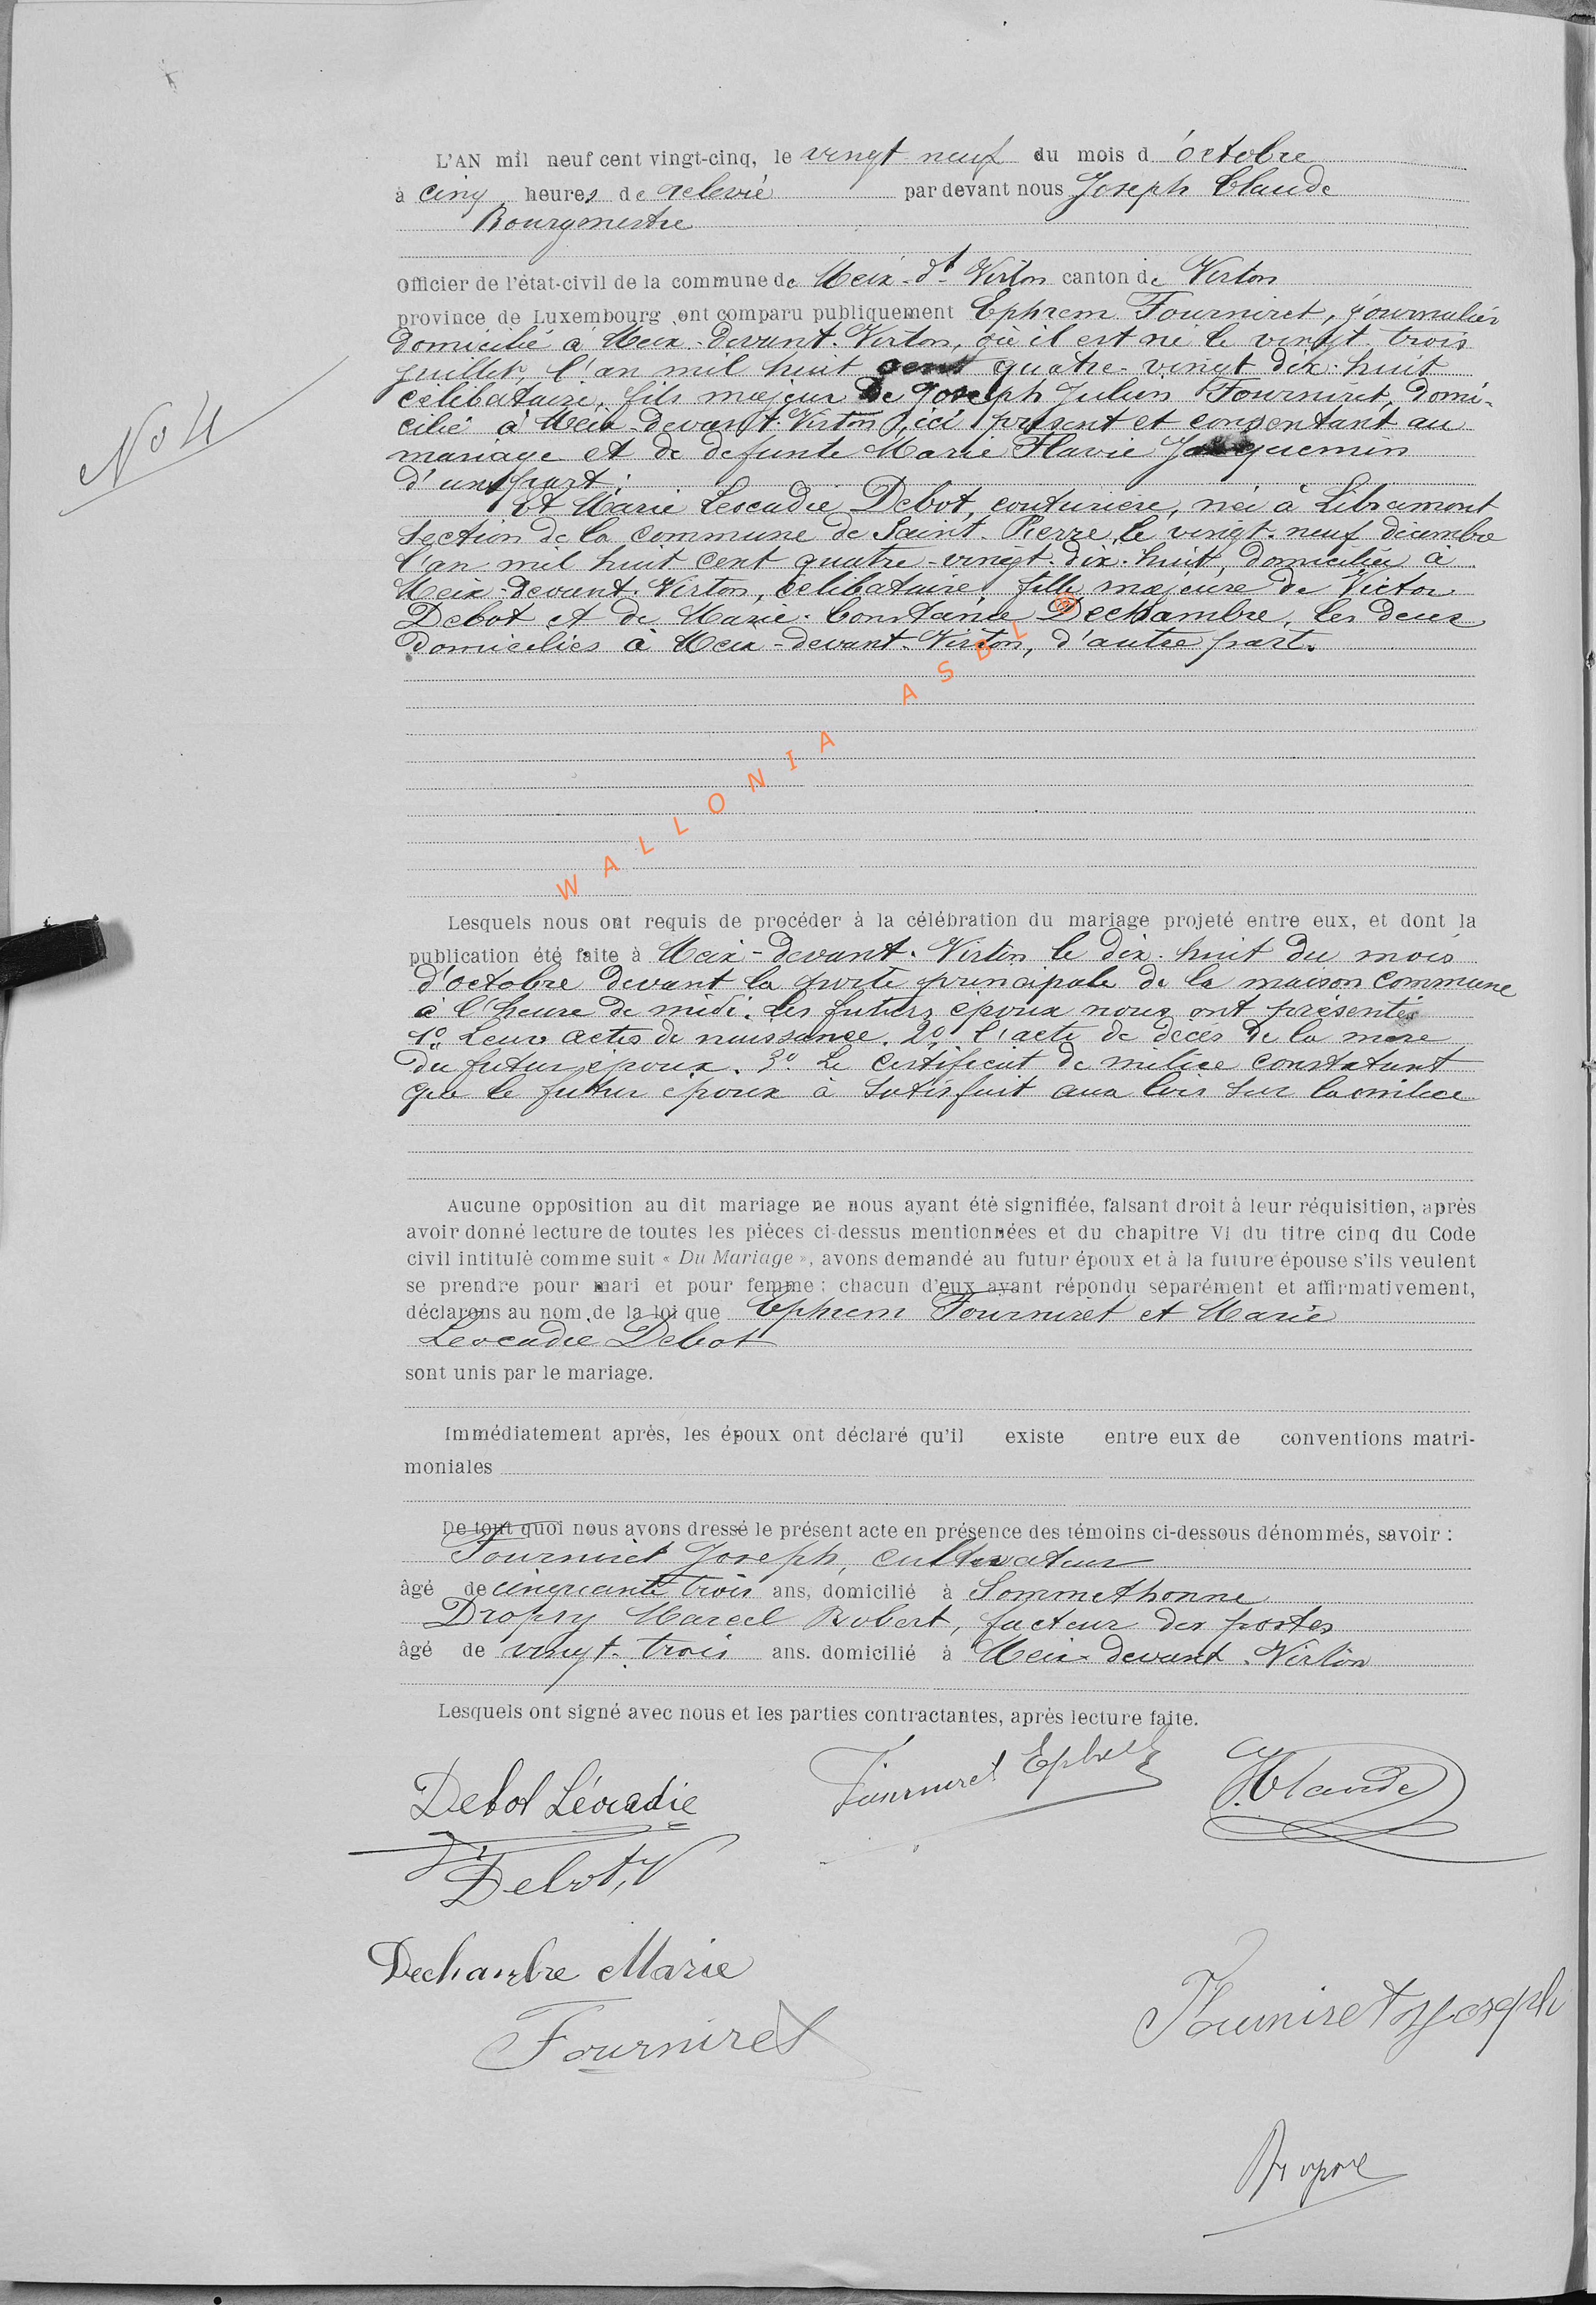 L'AN mil neuf cent vingt-cinq, le vingt neuf du mois d'octobre
à cinq heures de relevée par devant nous Joseph Claude
Bourgmestre
Officier de l'état-civil de la commune de Meix-dt-Virton canton de Virton
province de Luxembourg ont comparu publiquement Ephrem Fourniret, journalier
domicilié à Meix-devant-Virton, où il est né le vingt trois
juillet, l'an mil huit cent quatre-vingt dix-huit
célibataire, fils majeur de Joseph Julien Fourniret, domi-
cilié à Meix-devant-Virton, ici présent et consentant au
mariage et de défunte Marie Flavie Jacquemin
d'une part;
Et Marie Leocadie Debot, couturière, née à Libramont
section de la commune de Saint-Pierre, le vingt-neuf décembre
l'an mil huit cent quatre-vingt-dix-huit, domiciliée à
Meix-devant-Virton, célibataire, fille majeure de Victor
Debot et de Marie-Constance Dechambre, les deux
domiciliés à Meix-devant-Virton, d'autre part.
WALLONIA ASBL ®
Lesquels nous ont requis de procéder à la célébration du mariage projeté entre eux, et dont la
publication été faite à Meix-devant-Virton le dix-huit du mois
d'octobre devant la porte principale de la maison commune
à l'heure de midi. Les futurs époux nous ont présentés
1° Leurs actes de naissance. 2° l'acte de décès de la mère
du futur époux. 3° Le certificat de milice constatant
que le futur époux à satisfait aux lois sur la milice
Aucune opposition au dit mariage ne nous ayant été signifiée, faisant droit à leur réquisition, après
avoir donné lecture de toutes les pièces ci-dessus mentionnées et du chapitre VI du titre cinq du Code
civil intitulé comme suit « Du Mariage », avons demandé au futur époux et à la future épouse s'ils veulent
se prendre pour mari et pour femme : chacun d'eux ayant répondu séparément et affirmativement,
déclarons au nom de la loi que Ephrem Fourniret et Marie
Leocadie Debot
sont unis par le mariage.
Immédiatement après, les époux ont déclaré qu'il existe entre eux de conventions matri-
moniales
De tout quoi nous avons dressé le présent acte en présence des témoins ci-dessous dénommés, savoir :
Fourniret Joseph, cultivateur
âgé de cinquante trois ans, domicilié à Sommethonne
Dropsy Marcel Robert, facteur des postes
âgé de vingt-trois ans. domicilié à Meix-devant-Virton
Lesquels ont signé avec nous et les parties contractantes, après lecture faite.
Debot Léocadie Fourniret Ephrem J. Claude
Debot, V
Dechambre Marie
Fourniret Joseph
Fourniret